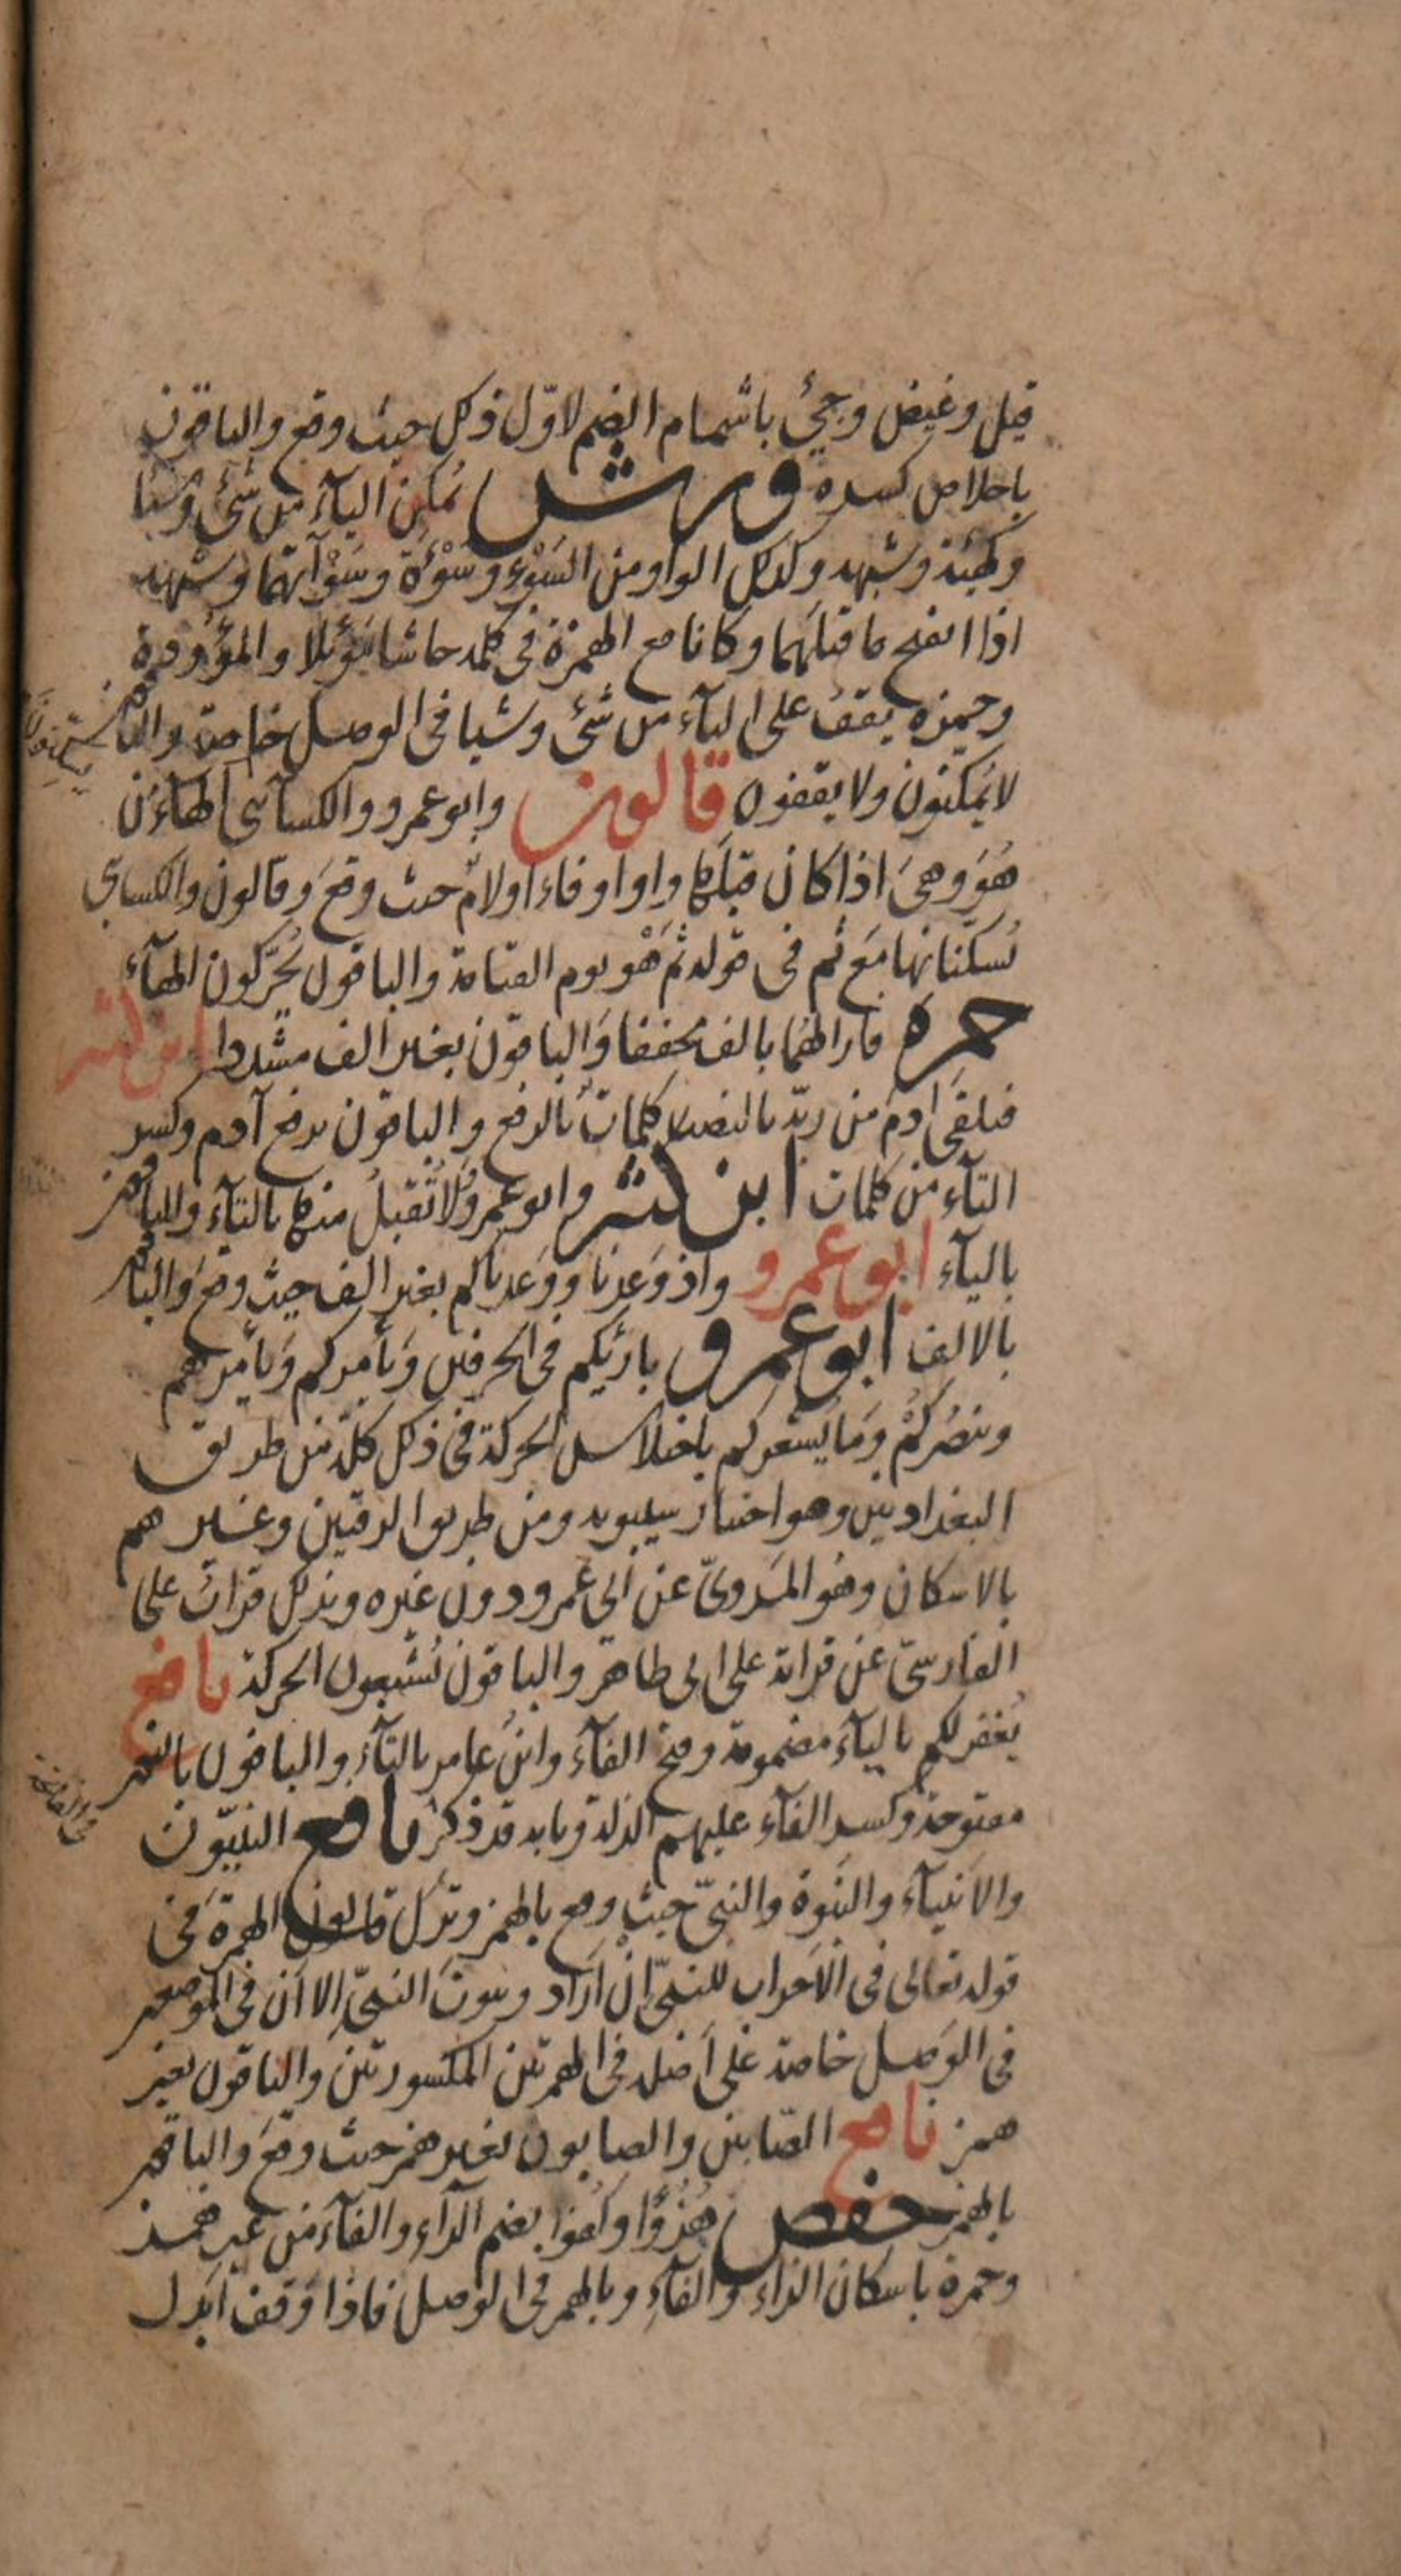 قيل وغيض وجيئ باشمام الضم لاوّل ذلك حيث وقع والباقون
باخلاص كسره ورش يُمكن اليآء من شئ وشيا
وكهيئة وشبهه وكذلك الواو من السَوْء وسَوْءَة وسَوْآتهما وشبهه
اذا انفتح ما قبلهما وكانا مع الهمزة في كلمة حاشا مَوْئلا والمؤودة
وحمزه يقف على اليآء من شئ وشيا في الوصل خاصة والباقون
لا يمكنون ولا يقفون قالون وابو عمرو والكسآئى الهآء من
هُوَ وهىَ اذا كان قبلها واوا او فاء او لام حيث وقع وقالون والكسائى
يُسكّنانها مَع ثم فى قوله ثم هْو يوم القيامة والباقون يُحرّكون الهآء
حمزه فازالهُما بالف مخففا والباقون بغير الف مشددا ابن كثير
فتلقى ادمَ من ربّه بالنصب كلماتٌ بالرفع والباقون برفع آدم وكسر
التآء من كلمات ابن كثير وابو عمرو ولا تُقبلُ منها بالتآء والباقون
باليآء ابو عمرو واذ وَعدنا ووَعدناكم بغير الف حيث وقع والباقون
بالالف ابو عمرو بارئكم في الحرفين وَيأمركم وَيأمرهم
وينصُركُمْ وَمَا يُشعركم باختلاس الحركة في ذلك كلّه من طريق
البغداديين وهو اختيار سيبويه ومن طريق الرقيين وغيرهم
بالاسكان وهُو المَروىّ عن ابى عَمرو دون غيره وبذلك قراتُ على
الفارسىّ عن قراته على ابى طاهر والباقون يُشبعون الحركة نافع
يُغفر لكم باليآء مضمومة وفتح الفآء وابنُ عامر بالتآء والباقون بالنون
مفتوحة وكسر الفآء عليهم الذلة وبابه قد ذكر نافع النبيّون
والانبيآء والنبوة والنبىّ حيث وقع بالهمز وترك قالون الهمزة في
قوله تعالى في الاحزاب للنبىّ ان اراد وبيوتَ النبىّ الا ان في الموضعين
فى الوَصل خاصة على اَصله في الهمزتين المكسورتين والباقون بغير
همز نافع الصّابين والصابون بغير همز حيث وقع والباقون
بالهمز حفص هُزُوًا وكُفوا بضم الزاء والفآء من غير همز
وحمزة باسكان الزاء والفآء وبالهمز في الوصل فاذا وَقف اَبدل